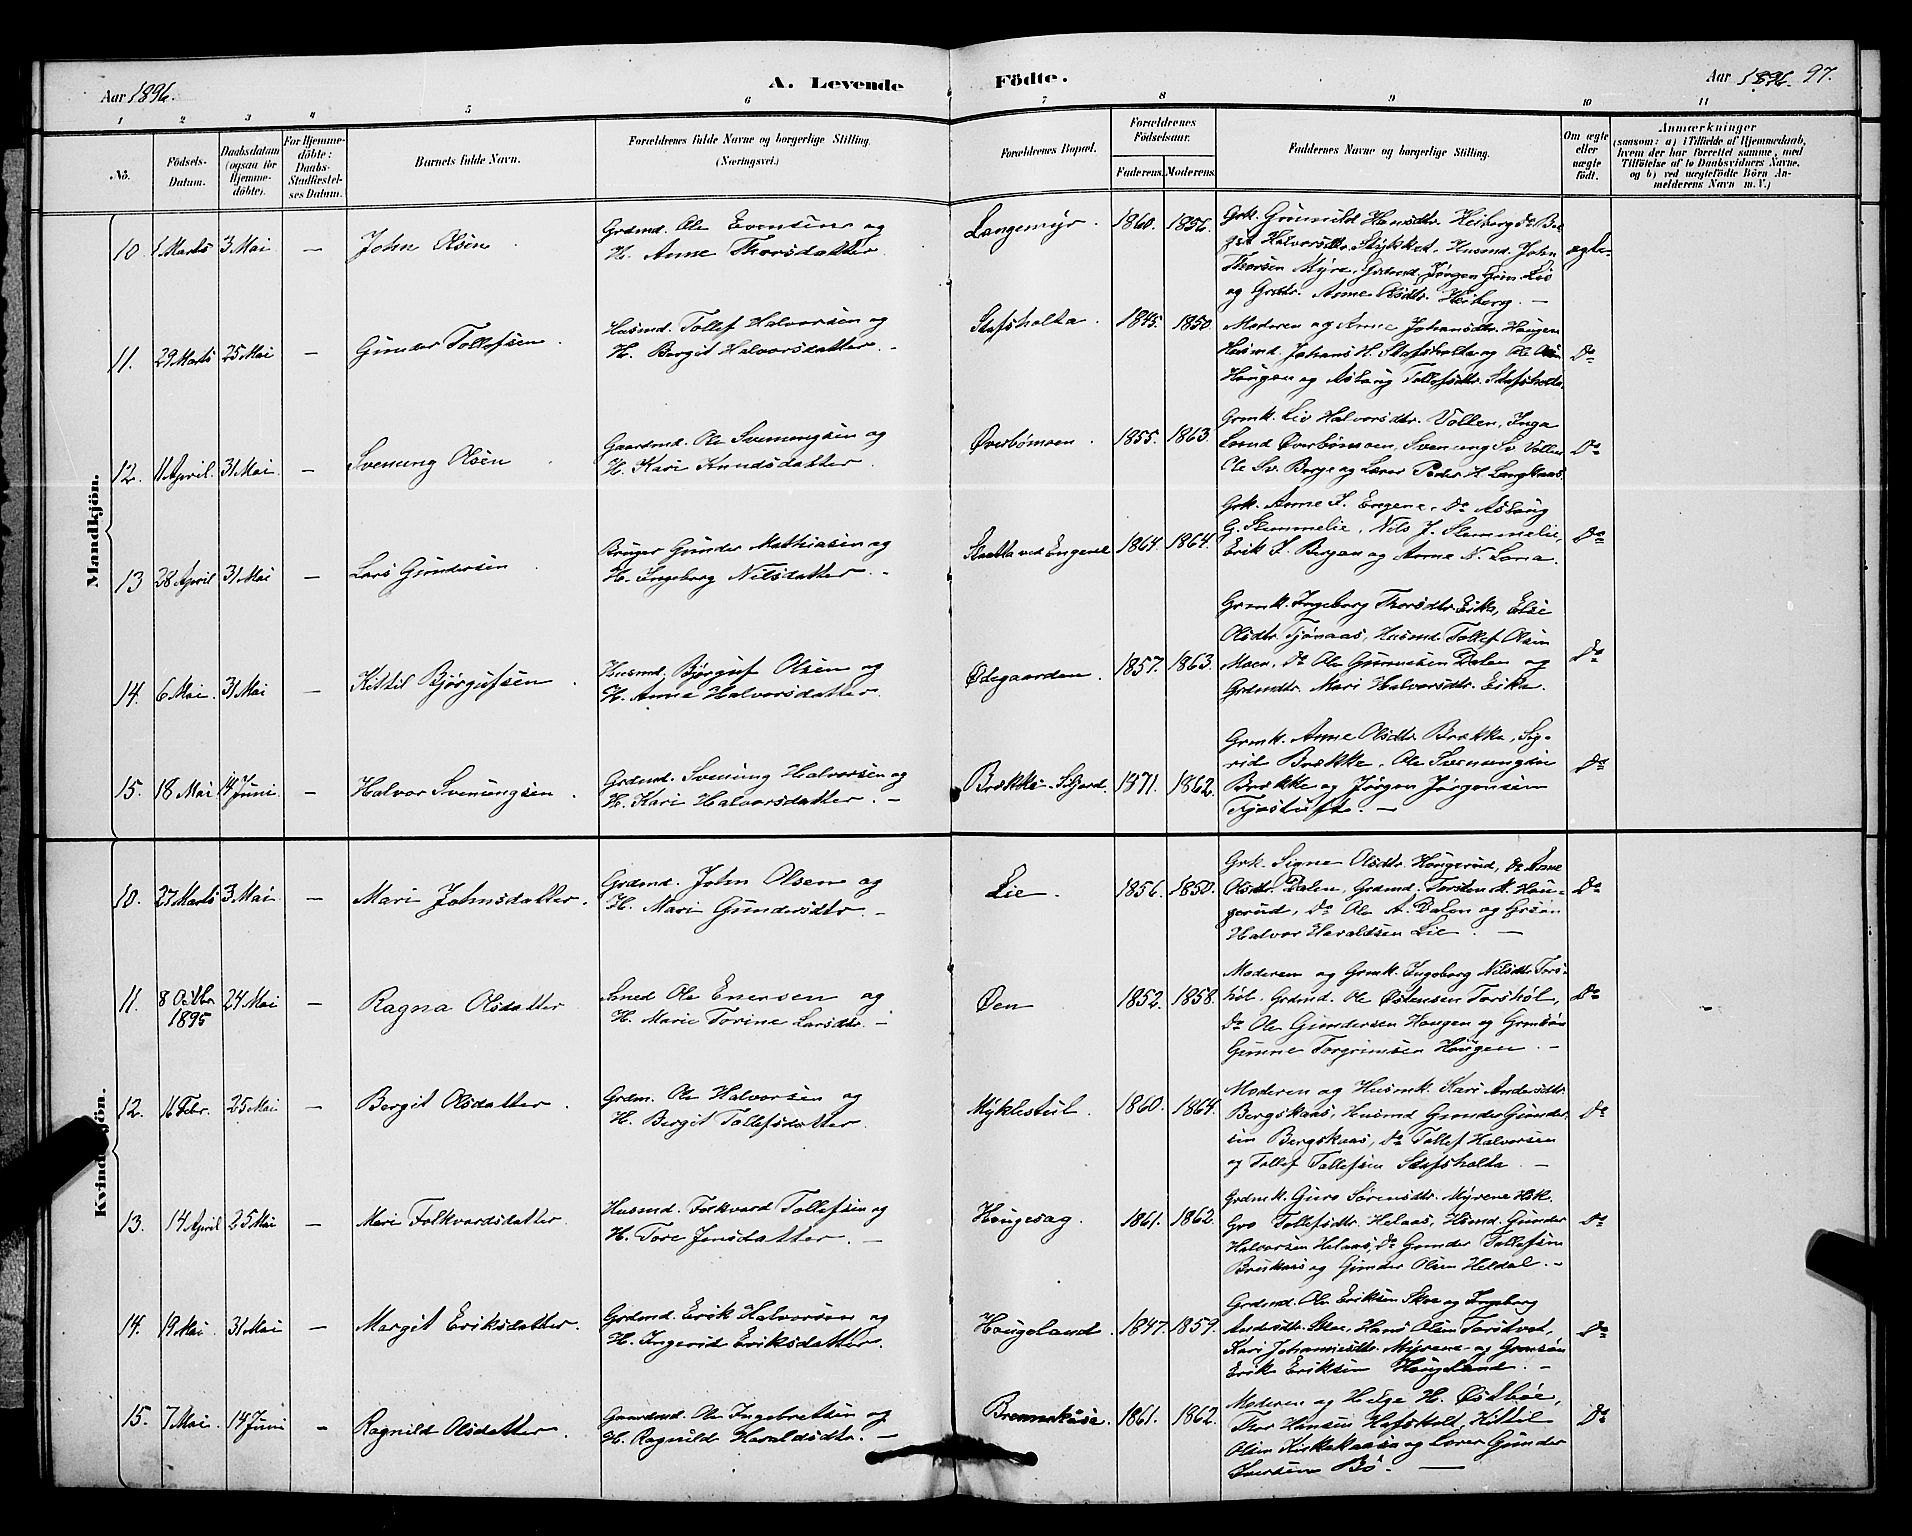 Aar 1896.
A. Levende Födte.
Aar 1896. 97.
1 2 3 4 5 6 7 8 9 10 11
No.
Födsels-Datum.
Daabsdatum (ogsaa for Hjemme-döbte).
For Hjemme-döbte: Daabs-Stadfæstel-ses Datum.
Barnets fulde Navn.
Forældrenes fulde Navne og borgerlige Stilling. (Næringsvei.)
Forældrenes Bopæl.
Forældrenes Födselsaar.
Faderens. Moderens.
Faddernes Navne og borgerlige Stilling.
Om ægte eller uægte födt.
Anmærkninger
(saasom: a) i Tilfælde af Hjemmedaab,
hvem der har forrettet samme, med
Tilföielse af to Daabsvidners Navne,
og b) ved uægtefödte Börn An-
melderens Navn m. V.)
Mandkjön.
10 1 Marts 3 Mai – John Olsen
Grdmd. Ole Evensen og
H. Anne Thorsdatter
Langemyr. 1860. 1856.
Grk. Gunnild Hansdtr. Heiberg, Do Ber
git Halvorsdtr. Stykket, Husmd. John
Thorsen Myre, Grdmd. Jörgen Grin. Lie
og Grdtr. Anne Olsdtr. Heiberg. –
ægte
11. 29 Marts 25 Mai – Gunder Tollefsen.
Husmd. Tollef Halvorsen og
H. Bergit Halvorsdatter. –
Stafsholta. 1845. 1850.
Moderen og Anne Johansdtr. Haugen
Husmd. Johans H. Stafsholta og Ole Olsen
Haugen og Aslaug Tollefsdtr. Stafsholta.
Do
12. 11 April. 31 Mai – Svenung Olsen
Gaardmd. Ole Svenungsen og
H. Kari Knudsdatter.
Øverbömoen. 1855. 1863.
Grmk. Liv Halvorsdtr. Vollen, Inga
Lund Øverbömoen, Svenung Sv. Vollen
Ole Sv. Berge og Lærer Peder H. Langkaas.
Do
13 28 April 31 Mai – Lars Gundersen
Bruger Gunder Mathiasen og
H. Ingeborg Nilsdatter. –
Slaatta ved Engene 1864. 1864.
Grk. Anne S. Engene, Do Aslaug
G. Stemmelie, Nils J. Stemmelie,
Erik S. Bergan og Anne N. Lona.
Do
14. 6 Mai. 31 Mai – Kittil Bjørgufsen.
Husmd. Bjørguf Olsen og
H. Anne Halvorsdatter.
Ødegaarden. 1857. 1863.
Grmk. Ingeborg Thorsdtr. Eika, Else
Olsdtr. Tjönaas, Husmd. Tollef Olsen
Moen, Do Ole Gunnesen Dalen og
Grdmdtr. Mari Halvorsdtr. Eika.
Do
15. 18 Mai 14 Juni. – Halvor Svenungsen.
Grdmd. Svenung Halvorsen og
H. Kari Halvorsdatter. –
Brække. Seljord. 1871. 1862.
Grmk. Anne Olsdtr. Brække, Sig-
rid Brække, Ole Svenungsen
Brække og Jørgen Jørgensen
Tjostufte. –
Do
Kvindekjön.
10. 27 Marts 3 Mai – Mari Johnsdatter.
Grdmd. John Olsen og
H. Mari Gundersdtr. –
Lie. 1856. 1850.
Grk. Signe Olsdtr. Haugerud, Do Anne
Olsdtr. Dalen, Grdmd. Torsten M. Hau-
gerud, Do Ole A. Dalen og Grsön
Halvor Haraldsen Lie. –
Do
11. 8 Octbr. 1895 24 Mai – Ragna Olsdatter
Smed Ole Enersen og
H. Marie Torine Larsdtr. –
Øen 1852. 1858.
Moderen og Grmk. Ingeborg Nilsdtr. Tors-
höl, Grdmd. Ole Østensen Torshöl,
Do Ole Gundersen Haugen og Grmsön
Gunne Torgrimsen Haugen. –
Do
12. 16 Febr. 25 Mai – Bergit Olsdatter.
Grdm. Ole Halvorsen og
H. Bergit Tollefsdatter.
Myklestul. 1860. 1864.
Moderen og Husmk. Kari Andersdtr.
Bergskaas, Husmd Gunder Gunder-
sen Bergskaas, Do Tollef Halvorsen
og Tollef Tollefsen Stafsholta. –
Do
13. 14 April 25 Mai – Mari Folkvardsdatter.
Husmd. Folkvard Tollefsen og
H. Tore Jensdatter. –
Haugesag. 1861. 1862.
Grdmk. Guro Sörensdtr. Myrene Hsk.
Gro Tollefsdtr. Helaas, Hsmd. Gunder
Halvorsen Helaas, Do Gunder Tollefsen
Brukaas og Gunder Olsen Heldal. –
Do
14. 19 Mai. 31 Mai – Margit Eriksdatter.
Grdmd Erik Halvorsen og
H. Ingerid Eriksdatter.
Haugeland. 1847. 1859.
Grdmd. Ole Eriksen Skoe og Ingeborg
Andersdtr. Skoe, Hans Olsen Torstvet,
Kari Johannesdtr. Myrene og Grmsön
Erik Eriksen Haugeland. –
Do
15. 7 Mai. 14 Juni – Ragnild Olsdatter.
Gaardmd. Ole Ingebretsen og
H. Ragnild Haraldsdtr. –
Brennekåse. 1861. 1862.
Moderen og Helge H. Østböe,
Thor Hansen Hafskolt, Kittil
Olsen Kirkekaasa og Lærer Gunder
Iversen Bö. –
Do